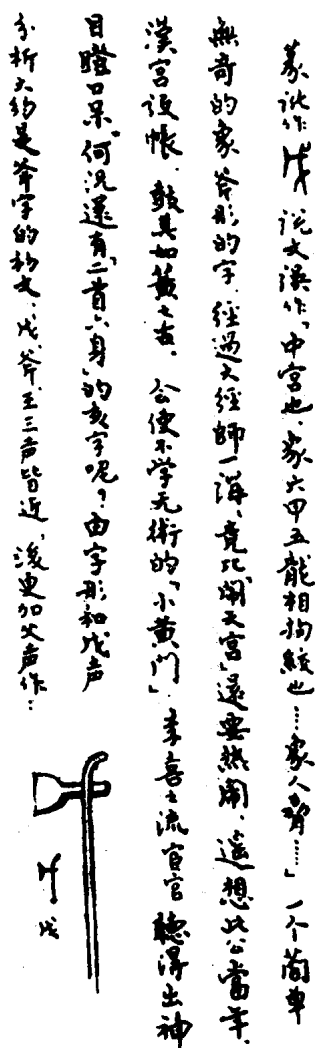 篆訛作戊说文误作「中宫也，象六甲五龍相拘絞也……象人脅……」一个简单
無奇的象斧形的字，经过大经師一講，竟比“闹天宫”還要熱闹，遥想此公當年，
漢宫设帳，鼓其如黄之舌，会使不学无術的「小黄门」，李喜之流宦官聽得出神
目瞪口呆。何况還有“二首六身”的亥字呢？由字形和戊声
分析大约是斧字的初文，戊、斧、王三声皆近，後更加父声作：
戊